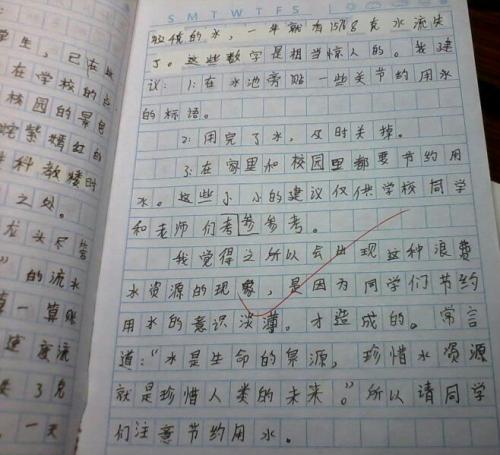 S M T W T F S
较长的水，一年就有15768克水流失
了。这些数字是相当惊人的。我建
议：1：在水池旁贴一些关节约用水
的标语。
2：用完了水，及时关掉。
3：在家里和校园里都要节约用
水。这些小小的建议仅供学校同学
和老师们考参参考。
我觉得之所以会出现这种浪费
水资源的现象，是因为同学们节约
用水的意识淡薄。才造成的。常言
道：“水是生命的泉源，珍惜水资源
就是珍惜人类的未来。”所以请同学
们注意节约用水。
学生，已在
在学校的
校园的景色
紫嫣红的
种教楼时
之处。
龙头尽管
”的流水
算一算账
速度流
失了克
，一天